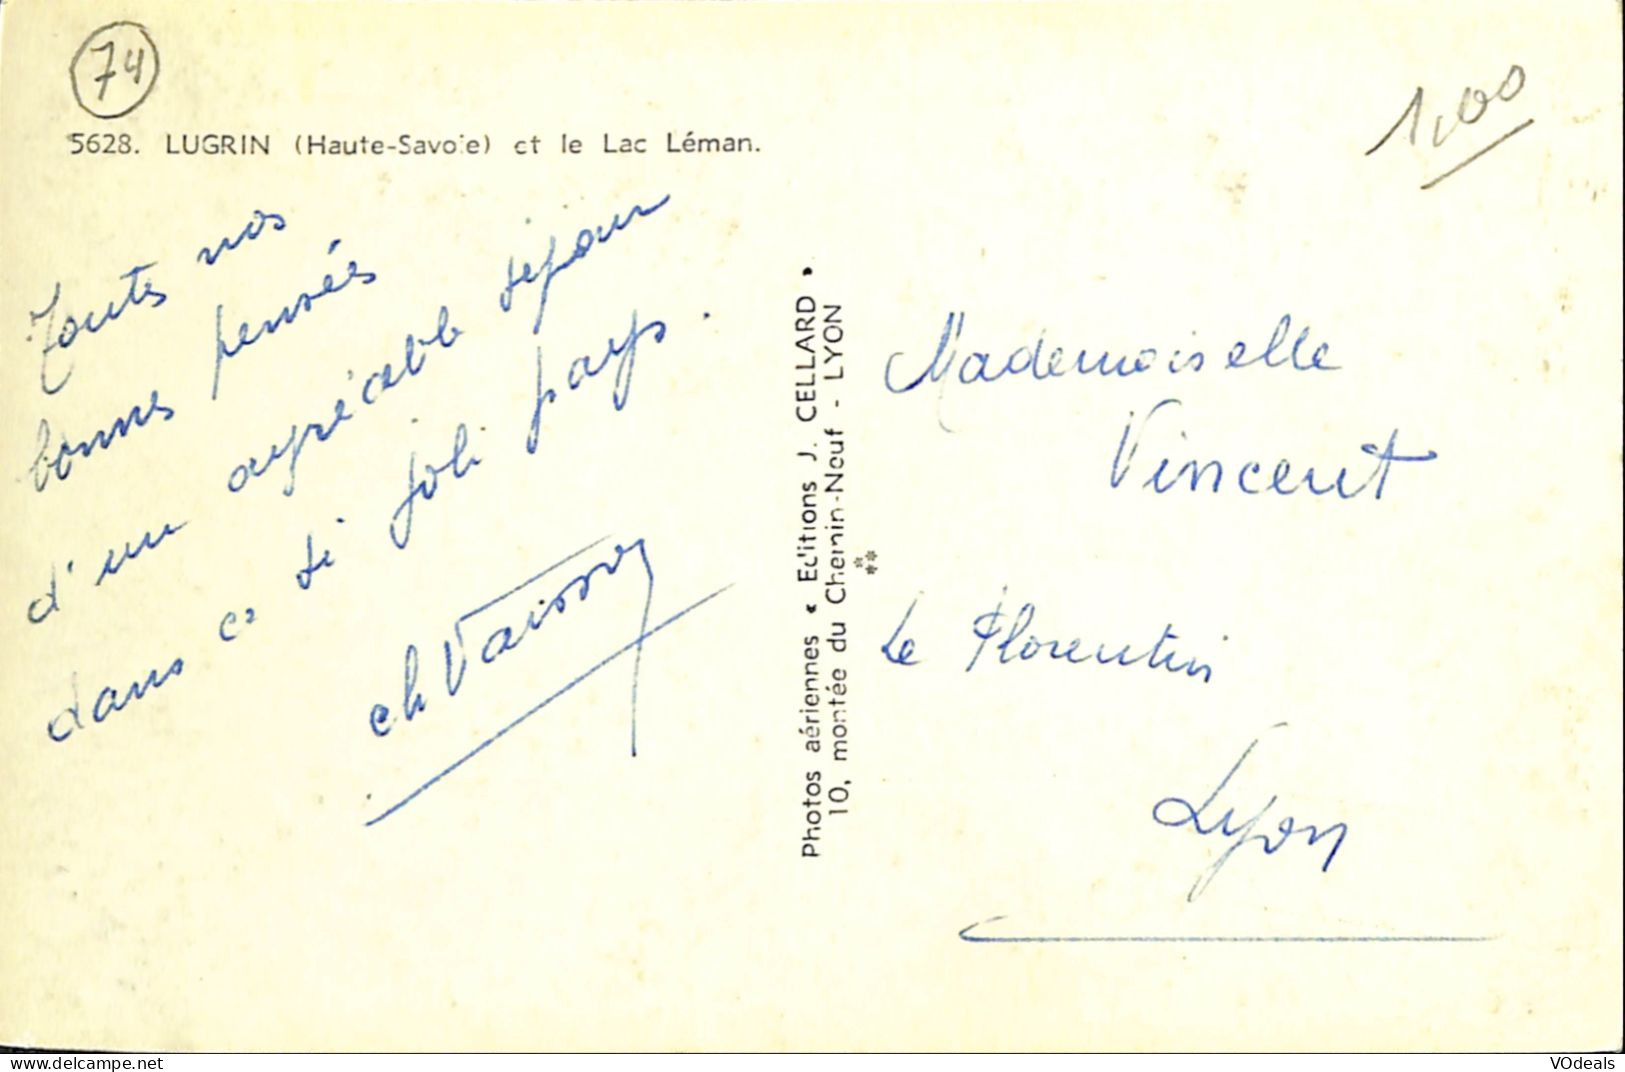 74
5628. LUGRIN (Haute-Savoie) et le Lac Léman.
1,00
Toutes nos
bonnes pensées
d'un agréable séjour
dans ce si joli pays.
ch
Photos aériennes « Editions J. CELLARD »
10, montée du Chemin-Neuf - LYON
Mademoiselle
Vincent
Le Florentin
Lyon
VOdeals